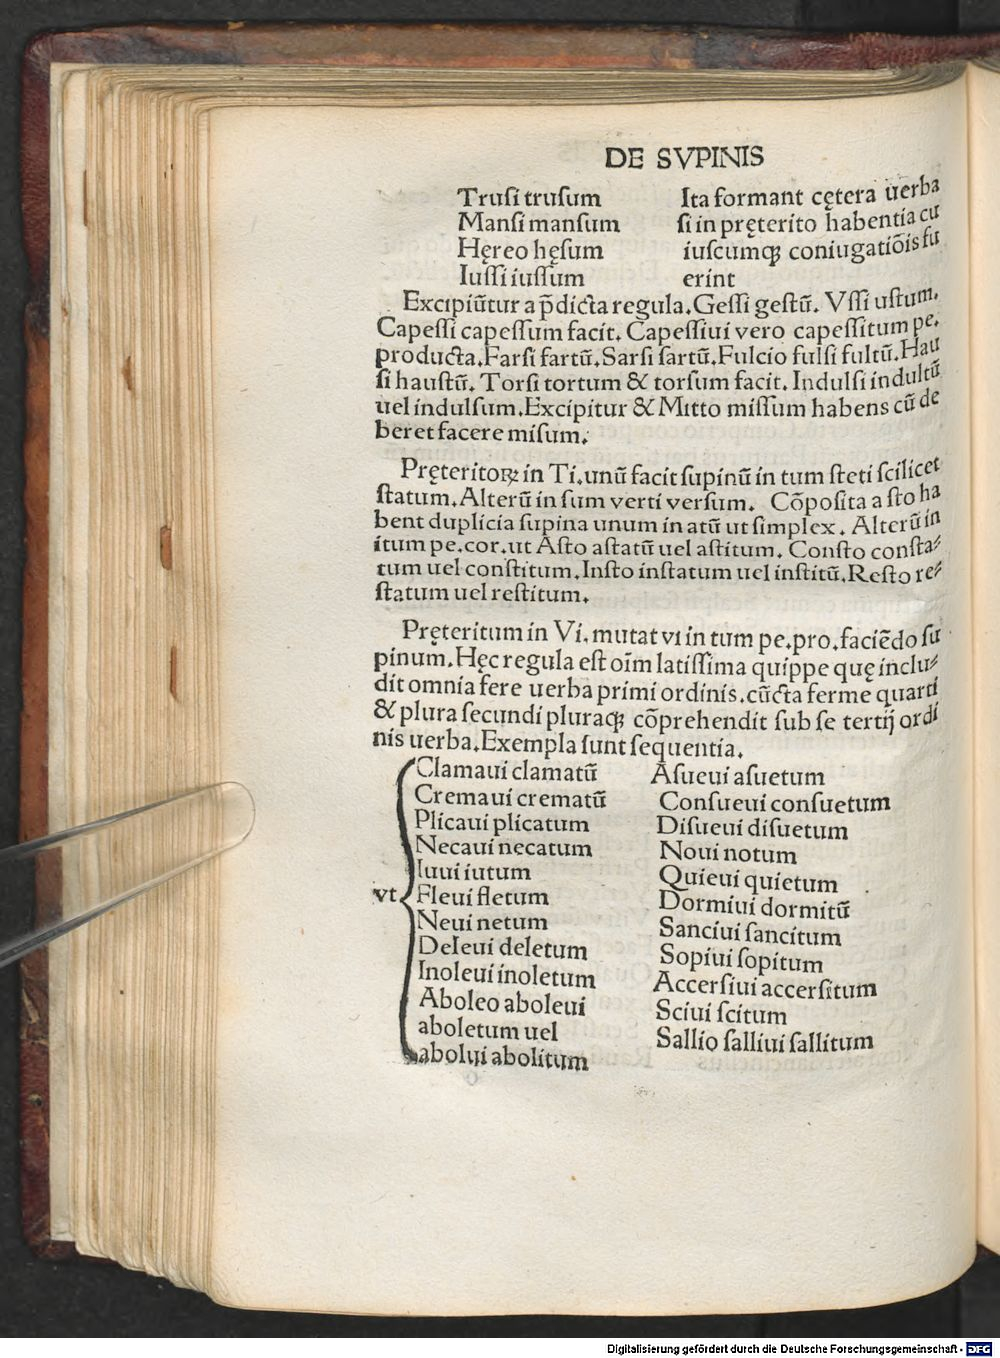 DE SVPINIS
Truſi truſum
Manſi manſum
Hęreo hęſum
Iuſſi iuſſum
Ita formant cętera uerba
ſi in pręterito habentia cu
iuſcumqꝫ coniugatiōis fu
erint
Excipiūtur a p̄dicta regula. Geſſi geſtū. Vſſi uſtum.
Capeſſi capeſſum facit. Capeſſiui vero capeſſitum pe.
producta. Farſi fartū. Sarſi ſartū. Fulcio fulſi fultū. Hau
ſi hauſtū. Torſi tortum & torſum facit. Indulſi indultū
uel indulſum. Excipitur & Mitto miſſum habens cū de
beret facere miſum.
Pręteritoꝝ in Ti. unū facit ſupinū in tum ſteti ſcilicet
ſtatum. Alterū in ſum verti verſum. Cōpoſita a ſto ha
bent duplicia ſupina unum in atū ut ſimplex. Alterū in
itum pe. cor. ut Aſto aſtatū uel aſtitum. Conſto conſta⸗
tum uel conſtitum. Inſto inſtatum uel inſtitū. Reſto re⸗
ſtatum uel reſtitum.
Pręteritum in Vi. mutat vi in tum pe. pro. faciēdo ſu
pinum. Hęc regula eſt oīm latiſſima quippe quę inclu⸗
dit omnia fere uerba primi ordinis. cūcta ferme quarti
& plura ſecundi pluraqꝫ cōprehendit ſub ſe tertij ordi
nis uerba. Exempla ſunt ſequentia.
vt
Clamaui clamatū
Cremaui crematū
Plicaui plicatum
Necaui necatum
Iuui iutum
Fleui fletum
Neui netum
Deleui deletum
Inoleui inoletum
Aboleo aboleui
aboletum uel
abolui abolitum
Aſueui aſuetum
Conſueui conſuetum
Diſueui diſuetum
Noui notum
Quieui quietum
Dormiui dormitū
Sanciui ſancitum
Sopiui ſopitum
Accerſiui accerſitum
Sciui ſcitum
Sallio ſalliui ſallitum
Digitalisierung gefördert durch die Deutsche Forschungsgemeinschaft - DFG